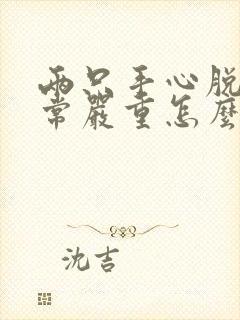 兩只手心脱
常嚴重怎麼
沈吉